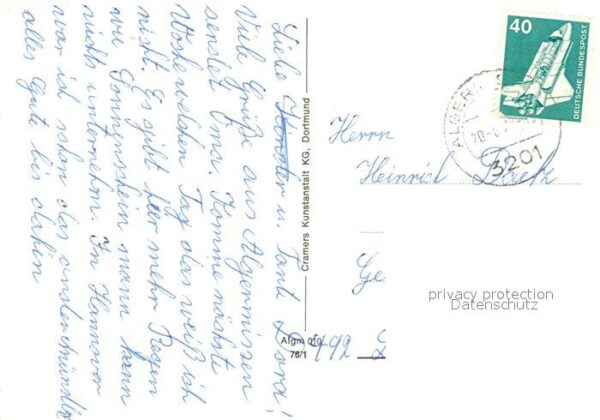 Liebe Tante Dora!
Viele Grüße aus Algermissen
sendet Oma. Komme nächste
Woche welchen Tag das weiß ich
nicht. Es gibt hier mehr Regen
wie Sonnenschein mann kann
nichts unternehm. In Hannover
war ich schon das andere mündlich
alles Gute bis dahin
Cramers Kunstanstalt KG, Dortmund
Algm 010
76/1
40
DEUTSCHE BUNDESPOST
ALGER
3201
Herrn
Heinrich
Ge
492 L
privacy protection
Datenschutz